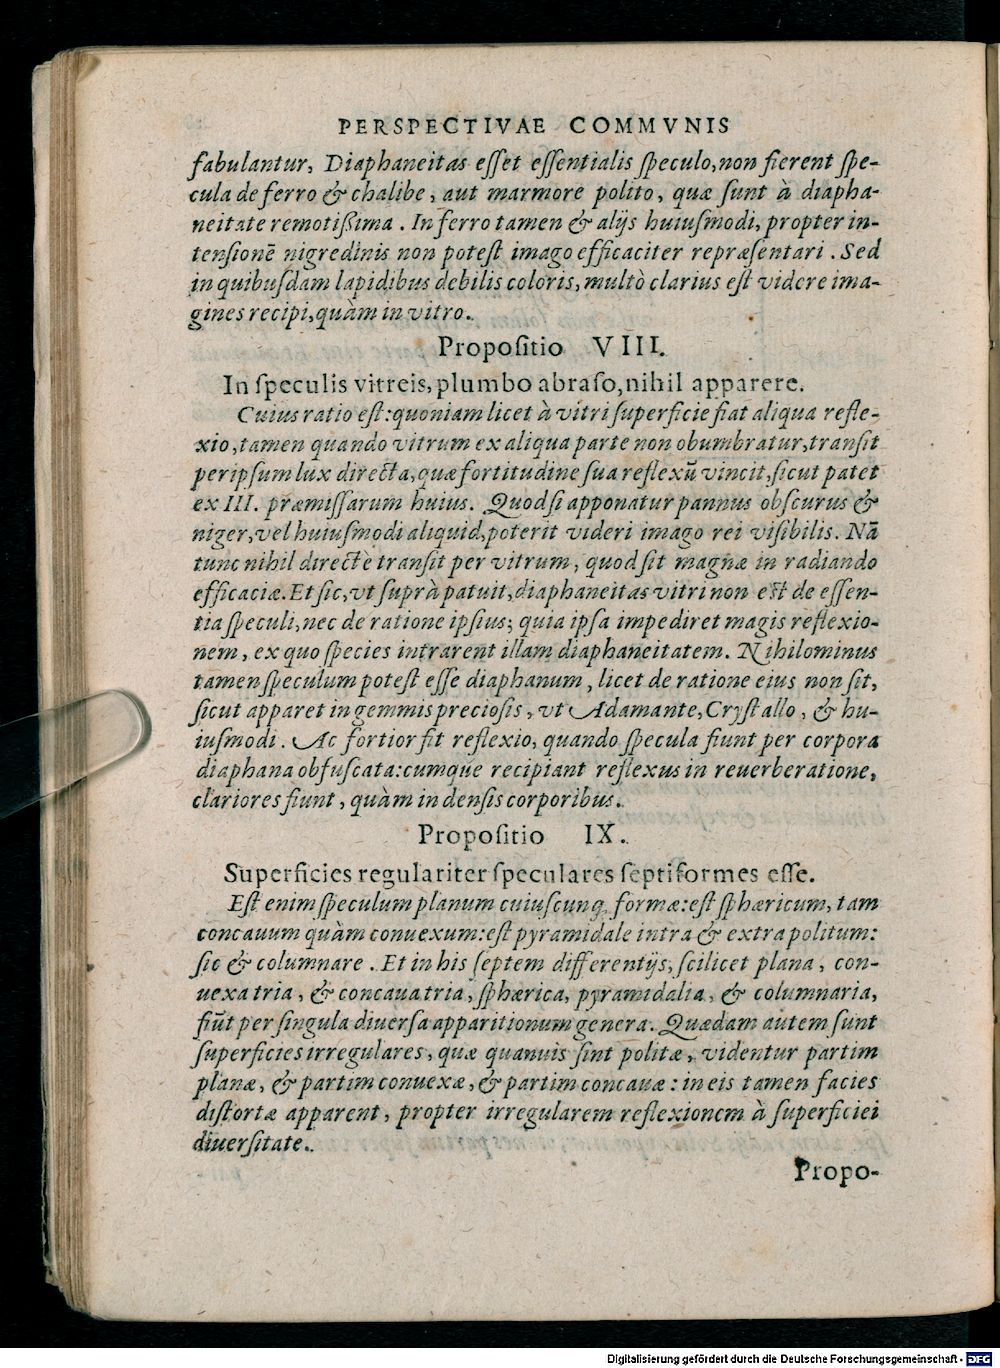 PERSPECTIVAE COMMVNIS
fabulantur, Diaphaneitas esset essentialis speculo, non fierent spe-
cula de ferro & chalibe, aut marmore polito, quæ sunt à diapha-
neitate remotißima. In ferro tamen & alijs huiusmodi, propter in-
tensionē nigredinis non potest imago efficaciter repræsentari. Sed
in quibusdam lapidibus debilis coloris, multò clarius est videre ima-
gines recipi, quàm in vitro.
Propositio VIII.
In speculis vitreis, plumbo abraso, nihil apparere.
Cuius ratio est: quoniam licet à vitri superficie fiat aliqua refle-
xio, tamen quando vitrum ex aliqua parte non obumbratur, transit
per ipsum lux directa, quæ fortitudine sua reflexū vincit, sicut patet
ex III. præmissarum huius. Quod si apponatur pannus obscurus &
niger, vel huiusmodi aliquid, poterit videri imago rei visibilis. Nā
tunc nihil directè transit per vitrum, quod sit magnæ in radiando
efficaciæ. Et sic, vt suprà patuit, diaphaneitas vitri non est de essen-
tia speculi, nec de ratione ipsius; quia ipsa impediret magis reflexio-
nem, ex quo species intrarent illam diaphaneitatem. Nihilominus
tamen speculum potest esse diaphanum, licet de ratione eius non sit,
sicut apparet in gemmis preciosis, vt Adamante, Crystallo, & hu-
iusmodi. Ac fortior fit reflexio, quando specula fiunt per corpora
diaphana obfuscata: cumque recipiant reflexus in reuerberatione,
clariores fiunt, quàm in densis corporibus.
Propositio IX.
Superficies regulariter speculares septiformes esse.
Est enim speculum planum cuiuscunq; formæ: est sphæricum, tam
concauum quàm conuexum: est pyramidale intra & extra politum:
sic & columnare. Et in his septem differentijs, scilicet plana, con-
uexa tria, & concaua tria, sphærica, pyramidalia, & columnaria,
fiūt per singula diuersa apparitionum genera. Quædam autem sunt
superficies irregulares, quæ quanuis sint politæ, videntur partim
planæ, & partim conuexæ, & partim concauæ: in eis tamen facies
distortæ apparent, propter irregularem reflexionem à superficiei
diuersitate.
Propo-
Digitalisierung gefördert durch die Deutsche Forschungsgemeinschaft - DFG